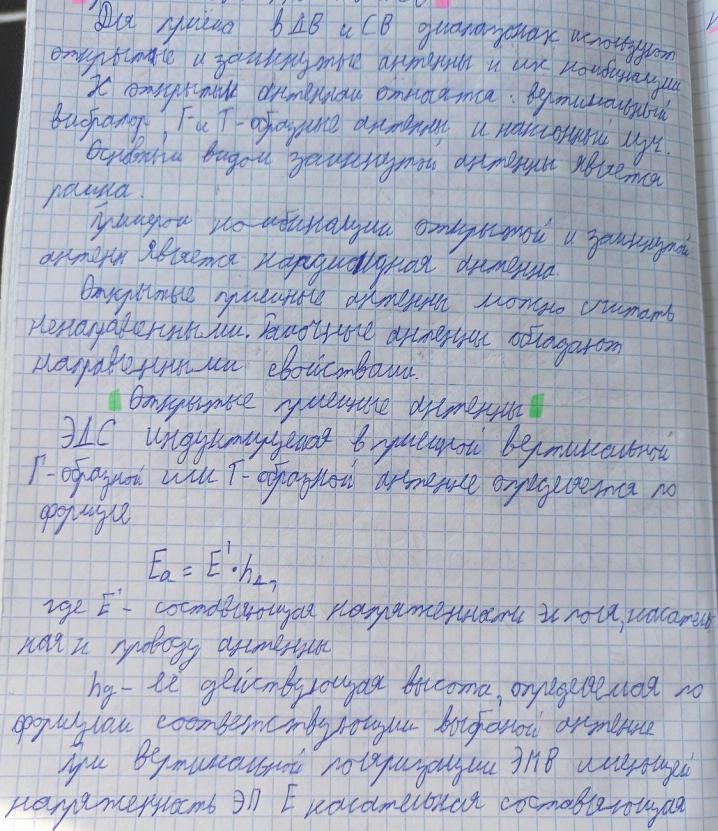 Для приёма в ДВ и СВ диапазонах используют
открытые и замкнутые антенны и их комбинации
К открытым антеннам относятся: вертикальный
вибратор, Г- и Т-образные антенны и наклонный луч.
Основным видом замкнутой антенны является
рамка.
Примером комбинации открытой и замкнутой
антенн является кардиоидная антенна.
Открытые приемные антенны можно считать
ненаправленными. Рамочные антенны обладают
направленными свойствами.
Открытые приемные антенны
ЭДС индуктируемая в приемной вертикальной
Г-образной или Т-образной антенне определяется по
формуле
Eа = E'·hд,
где E' - составляющая напряженности эл поля, касатель
ная к проводу антенны
hд - её действующая высота, определяемая по
формулам соответствующим выбраной антенне
При вертикальной поляризации ЭМВ имеющей
напряженность ЭП E касательная составляющая